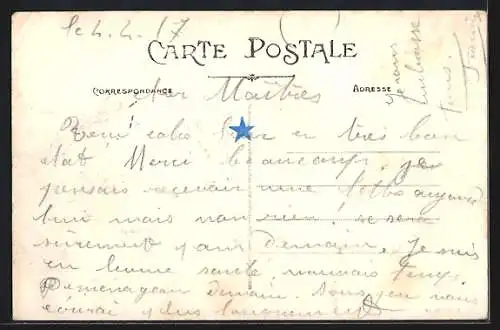 le 4.4.17
CARTE POSTALE
CORRESPONDANCE
ADRESSE
Maîtres
Reçu colis hier en très bon
état Merci beaucoup. je
pensais recevoir une lettre aujourd
hui mais non rien. se sera
surement pour demain. Je suis
en bonne santé. mauvais temps.
demain. Nous
plus longuement
Je vous
embrasse